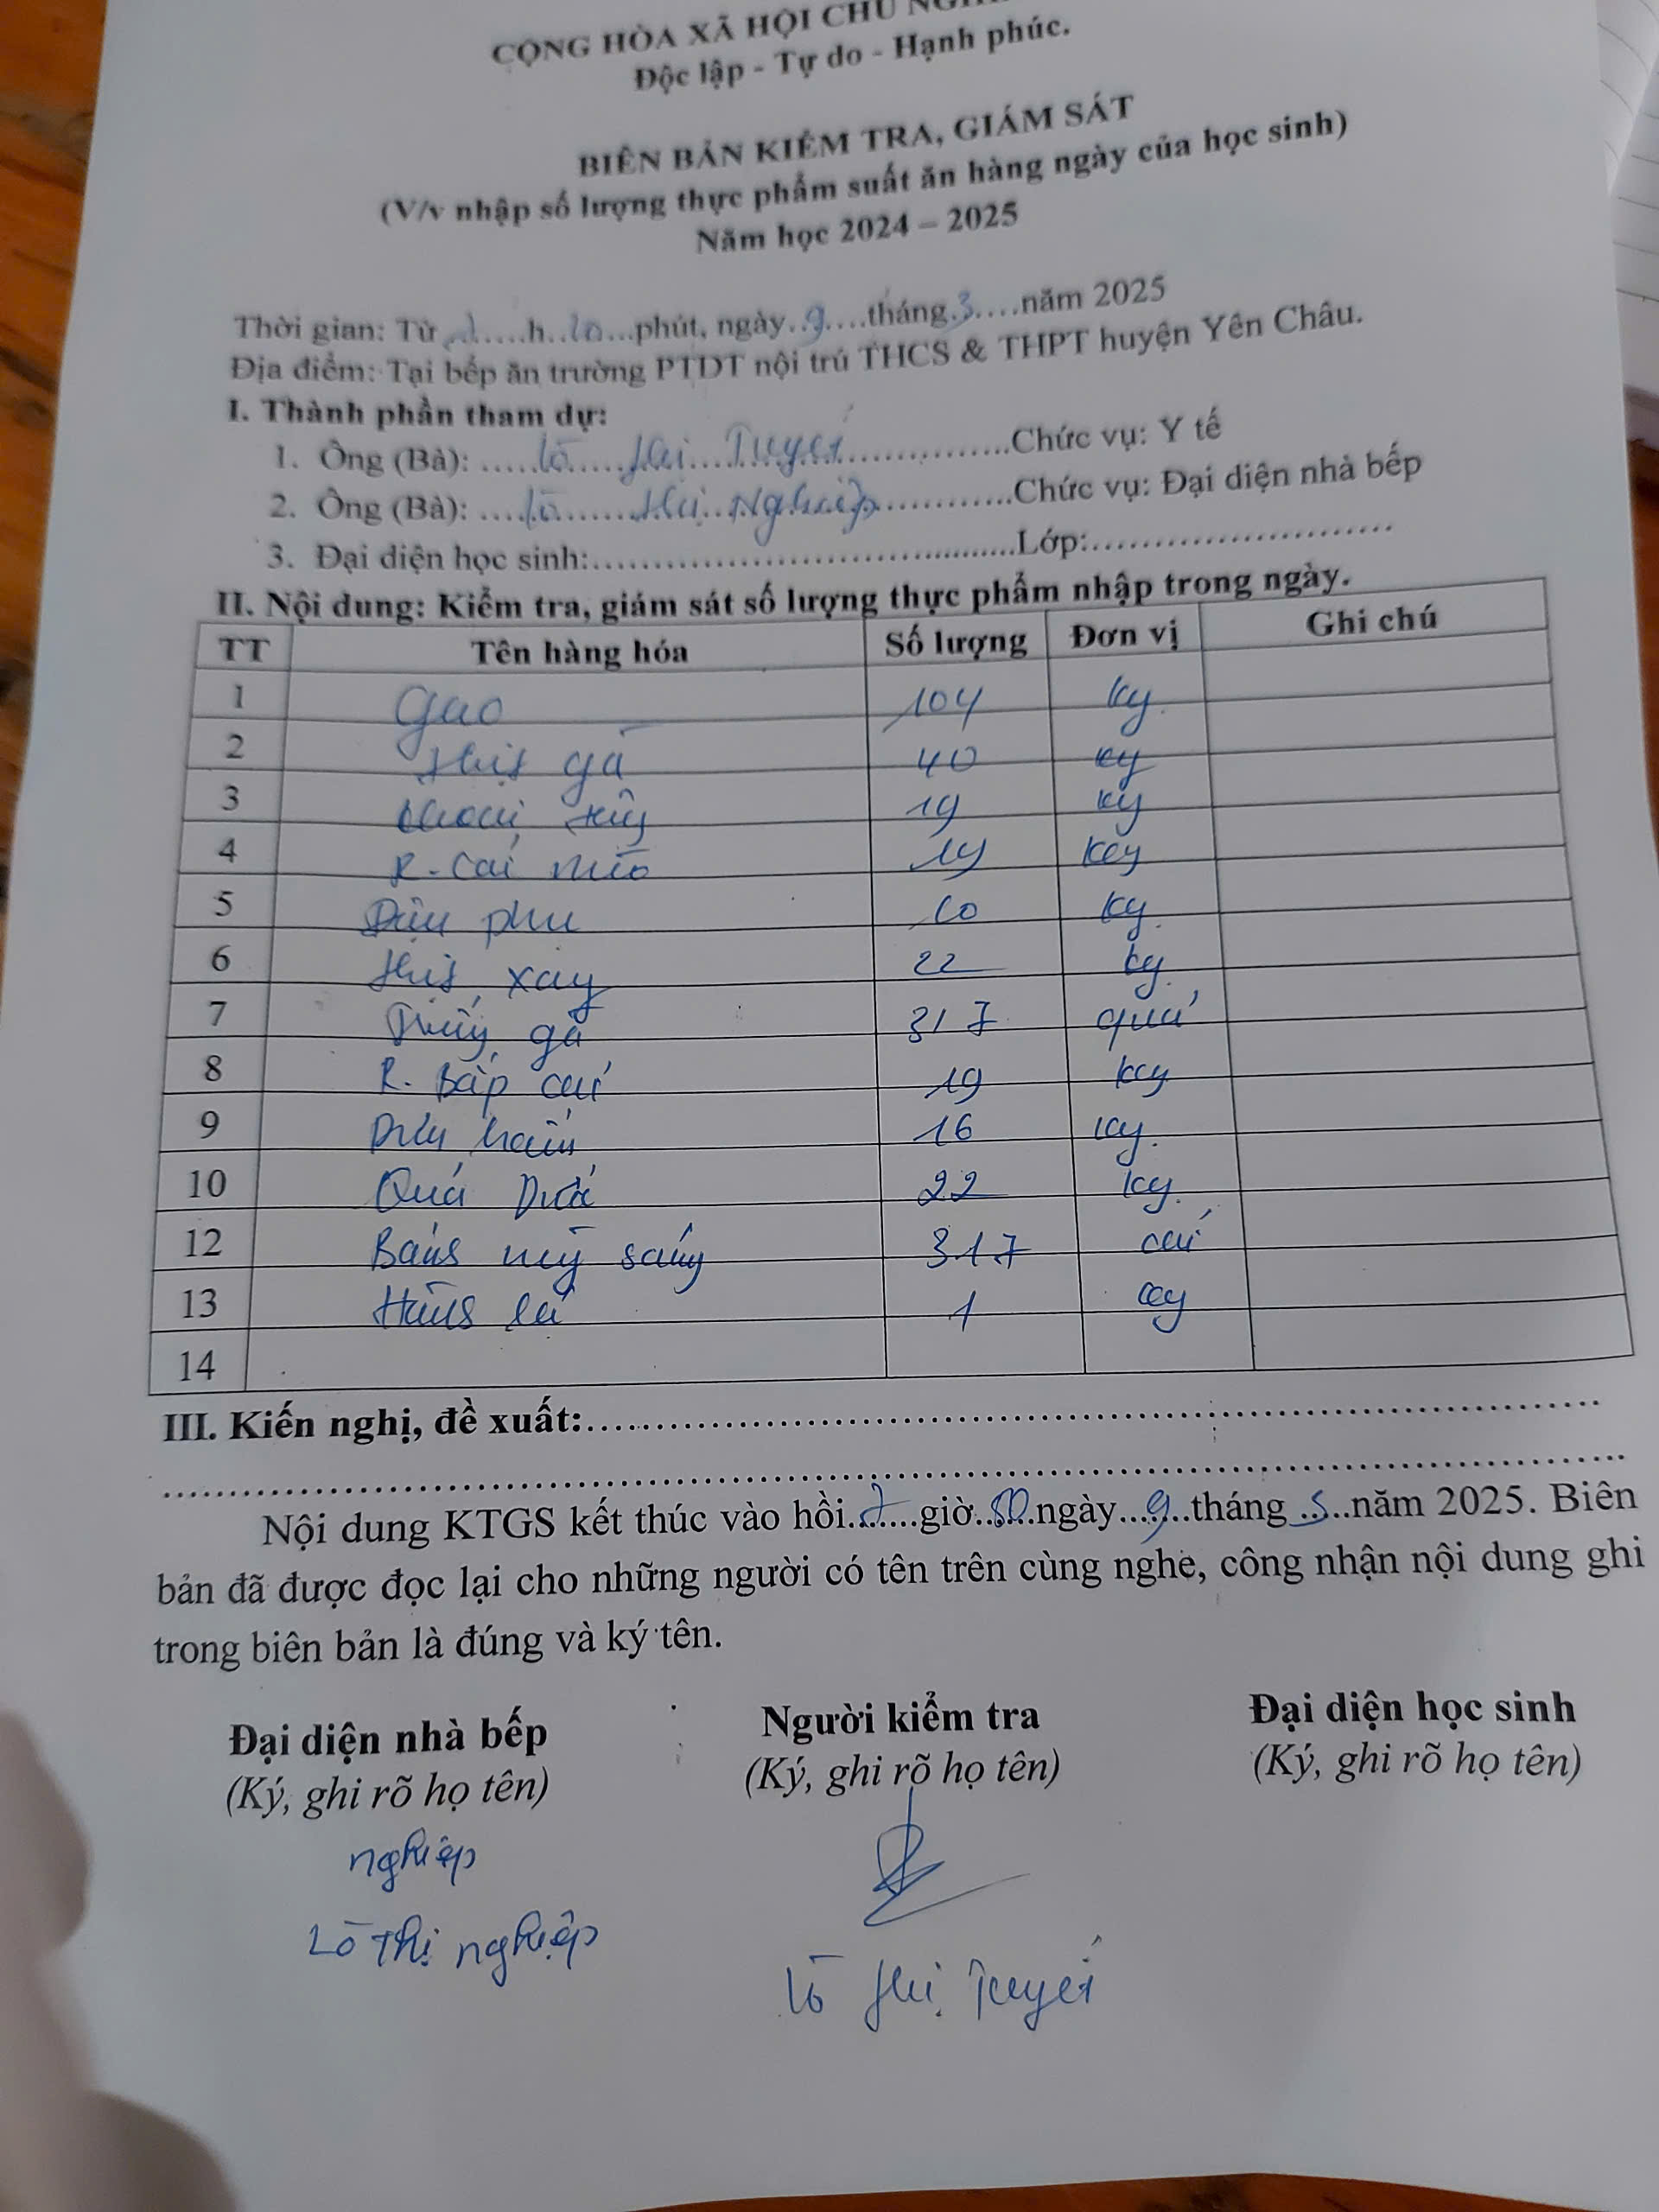 CỘNG HÒA XÃ HỘI CHỦ
Độc lập - Tự do - Hạnh phúc.
BIÊN BẢN KIỂM TRA, GIÁM SÁT
(V/v nhập số lượng thực phẩm suất ăn hàng ngày của học sinh)
Năm học 2024 – 2025
Thời gian: Từ.......h..10...phút, ngày..9....tháng.3....năm 2025
Địa điểm: Tại bếp ăn trường PTDT nội trú THCS & THPT huyện Yên Châu.
I. Thành phần tham dự:
1. Ông (Bà): .....Lò Thị Tuyết...............Chức vụ: Y tế
2. Ông (Bà): .....Lò Thị Nghiệp............Chức vụ: Đại diện nhà bếp
3. Đại diện học sinh:.......................................Lớp:...........................
II. Nội dung: Kiểm tra, giám sát số lượng thực phẩm nhập trong ngày.
TT Tên hàng hóa Số lượng Đơn vị Ghi chú
1 Gạo 104 kg
2 Thịt gà 40 kg
3 Khoai tây 19 kg
4 R. Cải mèo 19 kg
5 Đậu phụ 10 kg
6 Thịt xay 22 kg
7 Trứng gà 317 quả
8 R. Bắp cải 19 kg
9 16 kg
10 Quả Dứa 22 kg
12 Bánh mỳ sáng 317 cái
13 Hành lá 1 kg
14
III. Kiến nghị, đề xuất:.......................................................................
Nội dung KTGS kết thúc vào hồi.......giờ..50...ngày...9..tháng.....năm 2025. Biên
bản đã được đọc lại cho những người có tên trên cùng nghe, công nhận nội dung ghi
trong biên bản là đúng và ký tên.
Đại diện nhà bếp Người kiểm tra Đại diện học sinh
(Ký, ghi rõ họ tên) (Ký, ghi rõ họ tên) (Ký, ghi rõ họ tên)
nghiệp
Lò Thị nghiệp
Lò Thị Tuyết